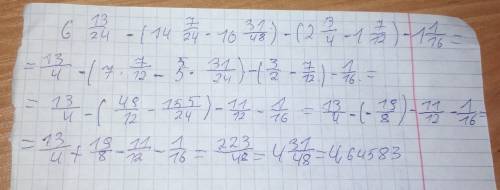 6 13/24 - (14 7/24 - 10 31/48) - (2 3/4 - 1 7/12) - 1 1/16 =
= 13/4 - (7 · 7/12 - 5 · 31/24) - (3/2 - 7/12) - 1/16 =
= 13/4 - (49/12 - 155/24) - 11/12 - 1/16 = 13/4 - (-19/8) - 11/12 - 1/16 =
= 13/4 + 19/8 - 11/12 - 1/16 = 223/48 = 4 31/48 = 4,64583